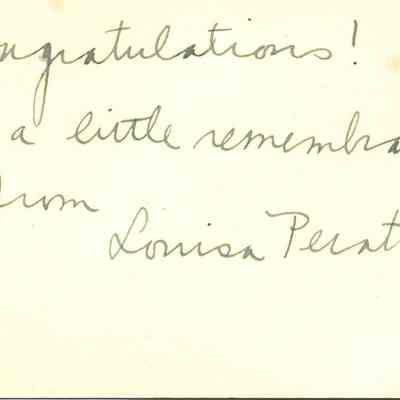 ongratulations!
a little remembra
from
Louisa Perat